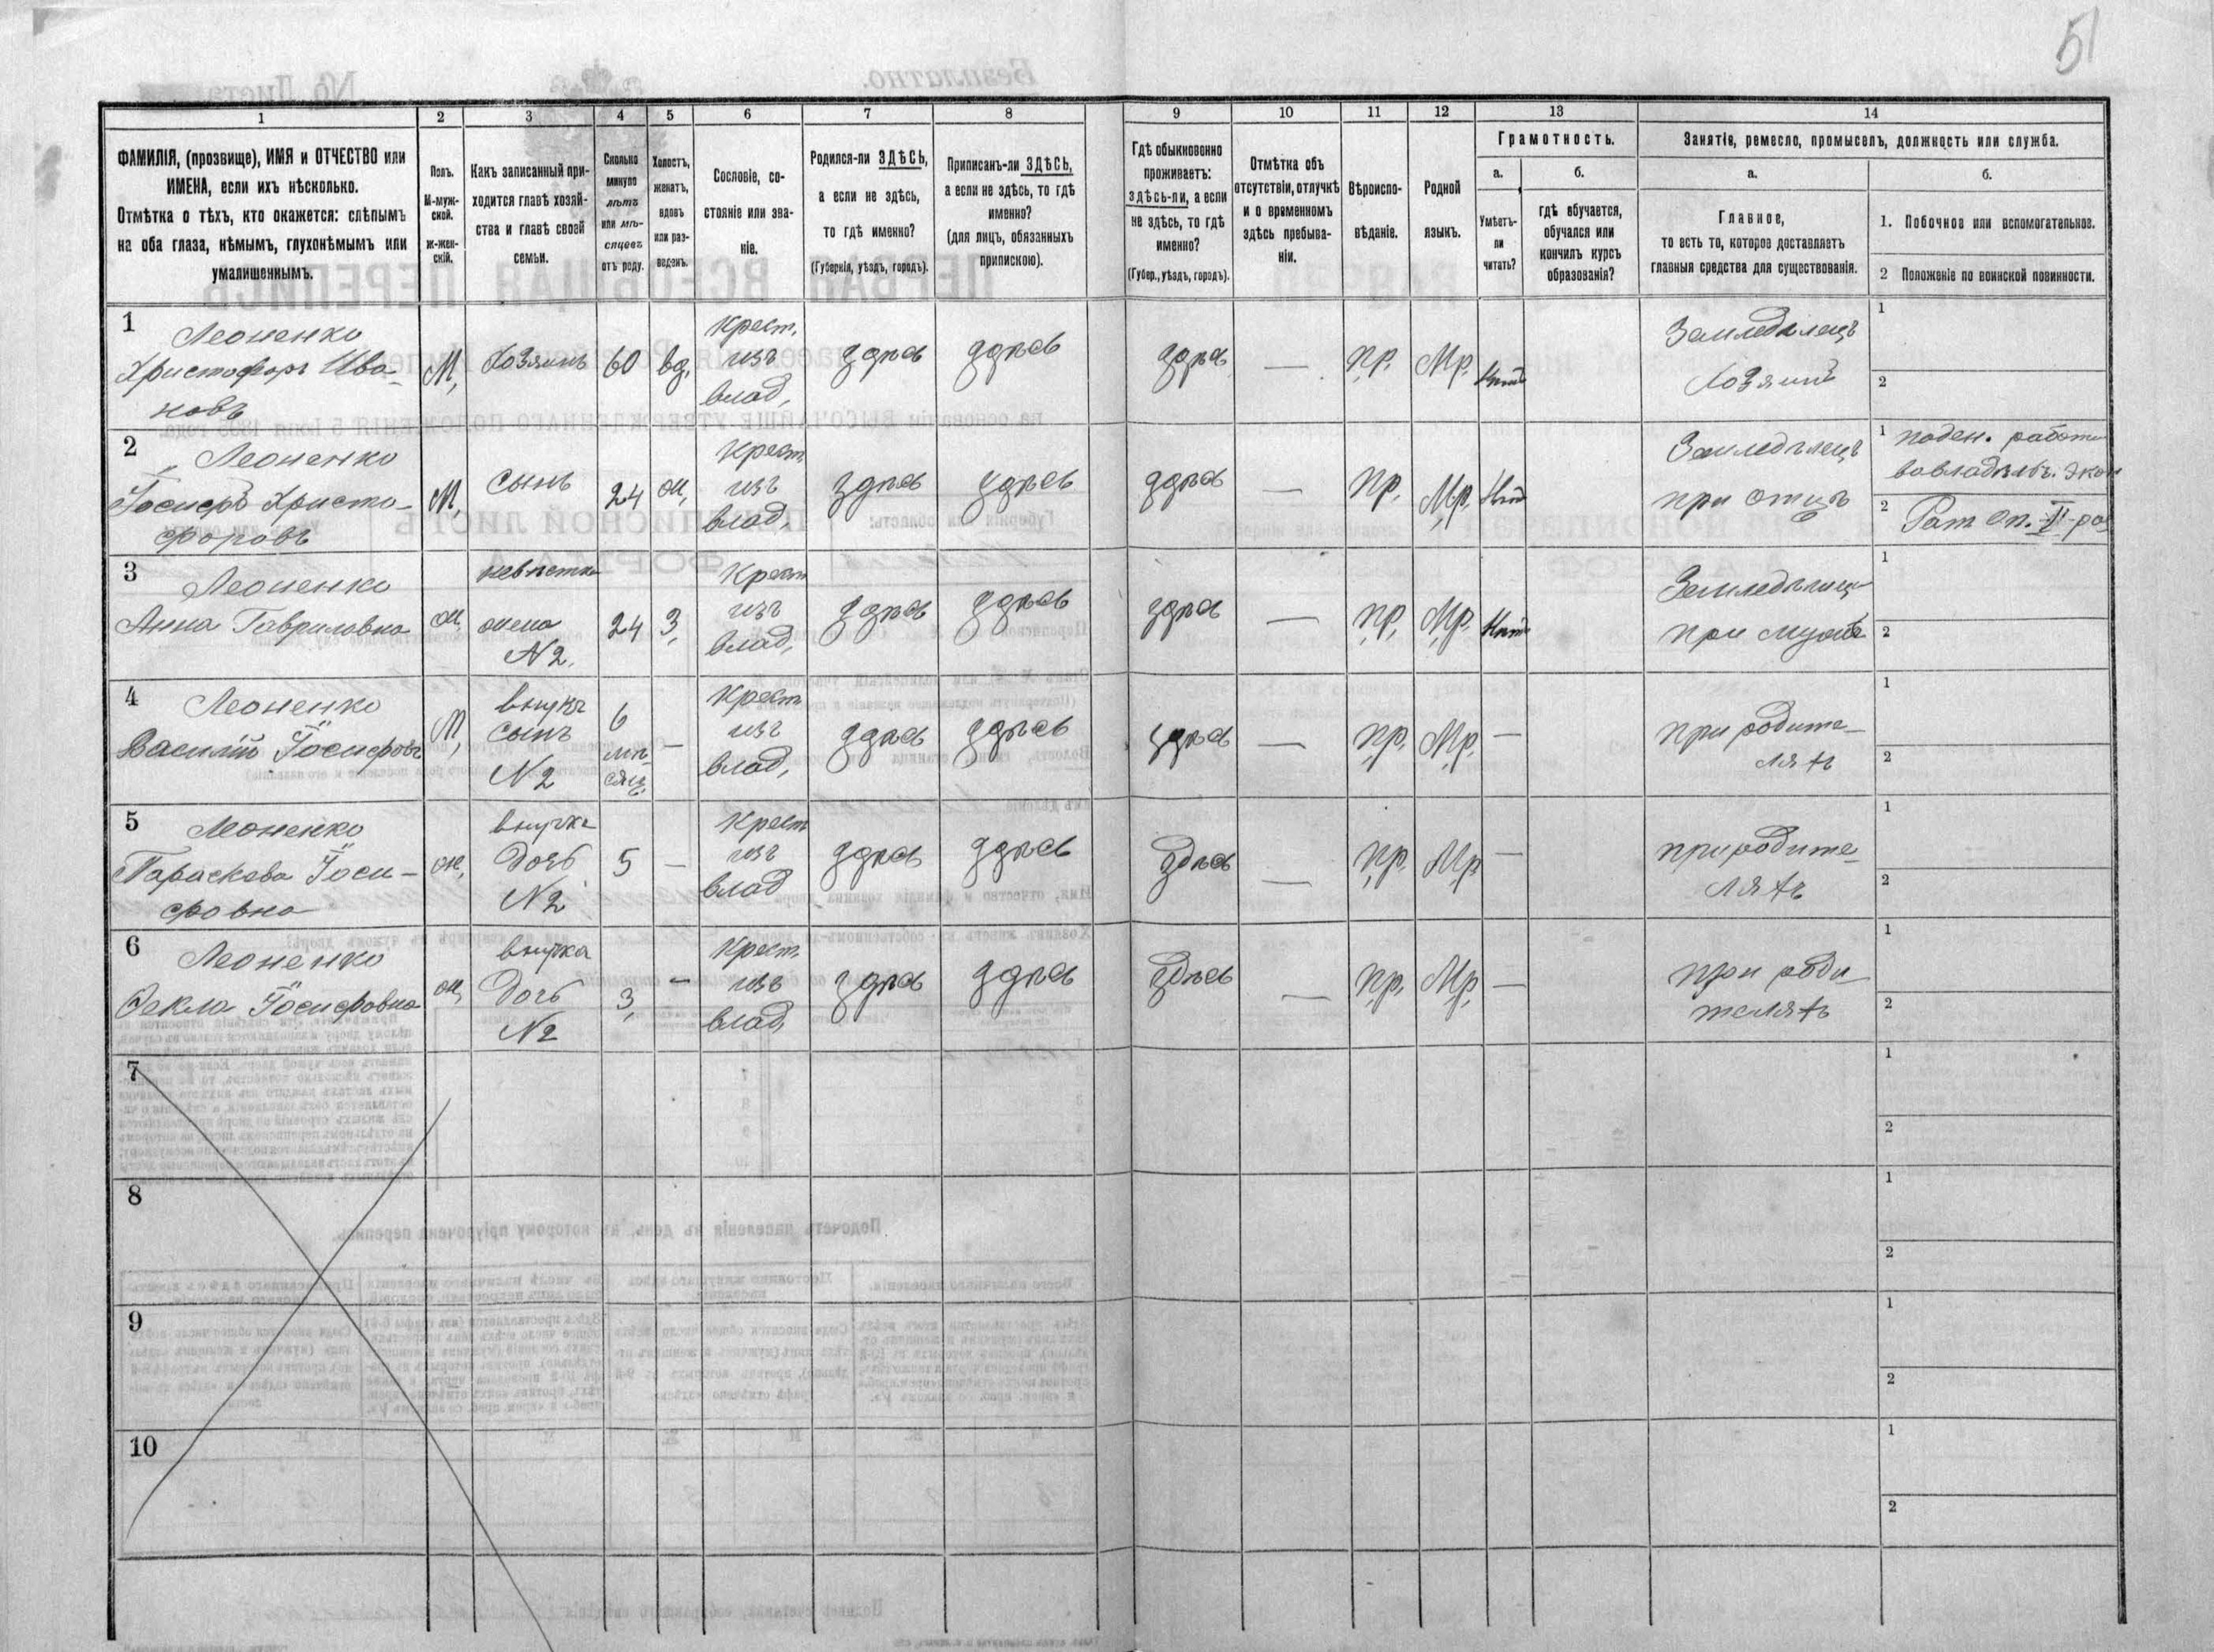 51
1 2 3 4 5 6 7 8 9 10 11 12 13 14
ФАМИЛІЯ, (прозвище), ИМЯ и ОТЧЕСТВО или
ИМЕНА, если ихъ нѣсколько.
Отмѣтка о тѣхъ, кто окажется: слѣпымъ
на оба глаза, нѣмымъ, глухонѣмымъ или
умалишеннымъ.
Полъ.
М-муж-
ской.
Ж-жен-
скій.
Какъ записанный при-
ходится главѣ хозяй-
ства и главѣ своей
семьи.
Сколько
минуло
лѣтъ
или мѣ-
сяцевъ
отъ роду.
Холостъ,
женатъ,
вдовъ
или раз-
веденъ.
Сословіе, со-
стояніе или зва-
ніе.
Родился-ли ЗДѢСЬ,
а если не здѣсь,
то гдѣ именно?
(Губернія, уѣздъ, городъ).
Приписанъ-ли ЗДѢСЬ,
а если не здѣсь, то гдѣ
именно?
(для лицъ, обязанныхъ
припискою).
Гдѣ обыкновенно
проживаетъ:
здѣсь-ли, а если
не здѣсь, то гдѣ
именно?
(Губер., уѣздъ, городъ).
Отмѣтка объ
отсутствіи, отлучкѣ
и о временномъ
здѣсь пребыва-
ніи.
Вѣроиспо-
вѣданіе.
Родной
языкъ.
Грамотность.
а.
Умѣетъ-
ли
читать?
б.
гдѣ обучается,
обучался или
кончилъ курсъ
образованія?
Занятіе, ремесло, промыселъ, должность или служба.
а.
Главное,
то есть то, которое доставляетъ
главныя средства для существованія.
б.
1. Побочное или вспомогательное.
2 Положеніе по воинской повинности.
1
Леоненко
Христофоръ Ива-
новъ
М,
Хозяинъ
60
вд,
Крест,
изъ
влад,
здѣсь
здѣсь
здѣсь
—
пр.
Мр.
Нѣтъ
Земледѣлецъ
Хозяинъ
1
2
2
Леоненко
Іосифъ Христо-
форовъ
М,
сынъ
24
ж,
Крест
изъ
влад,
здѣсь
здѣсь
здѣсь
—
пр,
Мр,
Нѣтъ
Земледѣлецъ
при отцѣ
1 поден. работн
2 Рат оп. II-раз
3
Леоненко
Анна Гавриловна
ж,
невѣстка
жена
N2.
24
З,
Крест
изъ
влад,
здѣсь
здѣсь
здѣсь
—
пр,
Мр.
Нѣтъ
при мужѣ
1
2
4
Леоненко
Василій Іосифовъ
М,
внукъ
сынъ
N2
6
мѣ-
сяц.
—
Крест
изъ
влад,
здѣсь
здѣсь
здѣсь
—
пр,
Мр,
—
при родите-
ляхъ
1
2
5
Леоненко
Параскева Іоси-
фовна
ж,
внучка
дочь
N2
5
—
Крест
изъ
влад
здѣсь
здѣсь
здѣсь
—
пр.
Мр
—
при родите-
ляхъ
1
2
6
Леоненко
Ѳекла Іосифовна
ж,
внучка
дочь
N2
3,
—
Крест.
изъ
влад
здѣсь
здѣсь
здѣсь
—
пр,
Мр,
—
при роди-
теляхъ
1
2
7
1
2
8
1
2
9
1
2
10
1
2